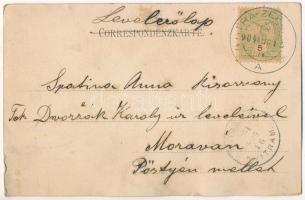 Levelezőlap
CORRESPONDENZKARTE
Spatina Anna kisasszony
Tek Dworžák Károly úr leveleivel
Moraván
Pöstyén mellett
5
A